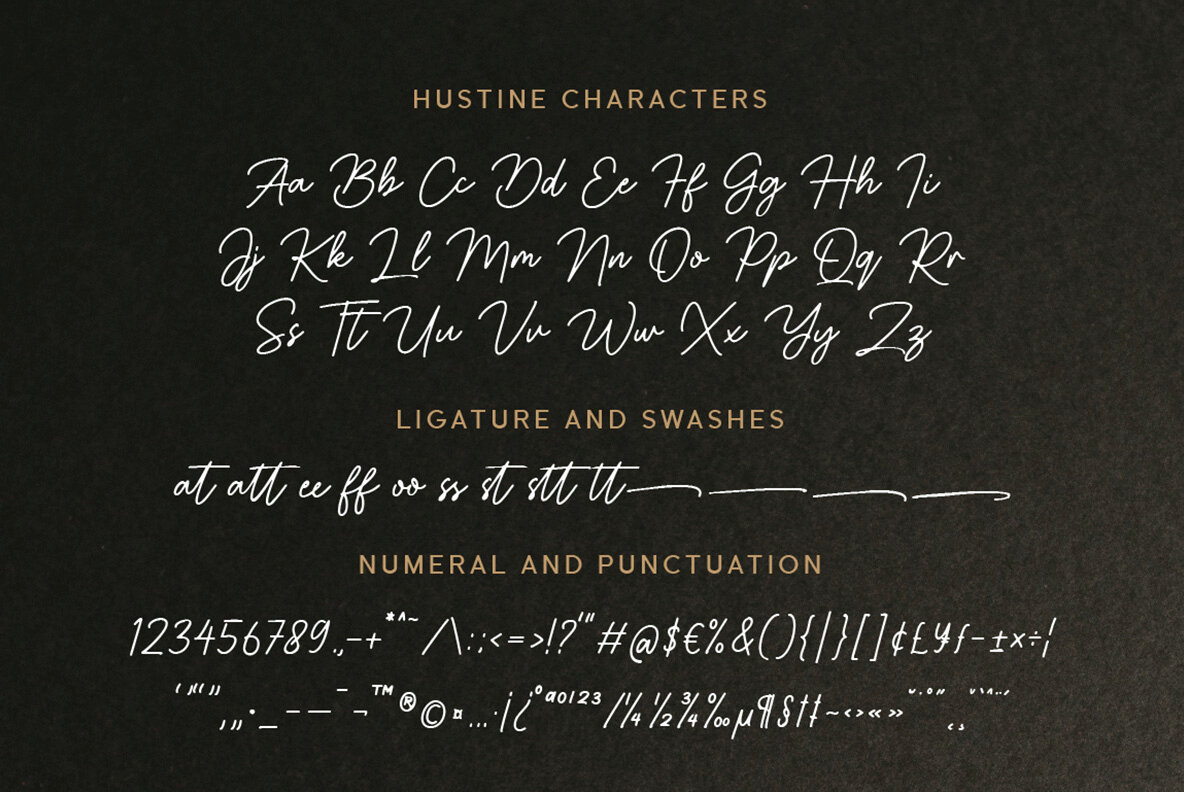 HUSTINE CHARACTERS
Aa Bb Cc Dd Ee Ff Gg Hh Ii
Jj Kk Ll Mm Nn Oo Pp Qq Rr
Ss Tt Uu Vv Ww Xx Yy Zz
LIGATURE AND SWASHES
at att ee ff oo ss st stt tt
NUMERAL AND PUNCTUATION
1234567890.,-+*^~/\:;<=>!?'"#@$€%&(){|}[]¢£¥ƒ-±×÷¦
‘“‘“”‚„„•_–—¯¬™®©¤…·¡¿ºª0123/¼½¾‰µ¶§†‡~‹›«»